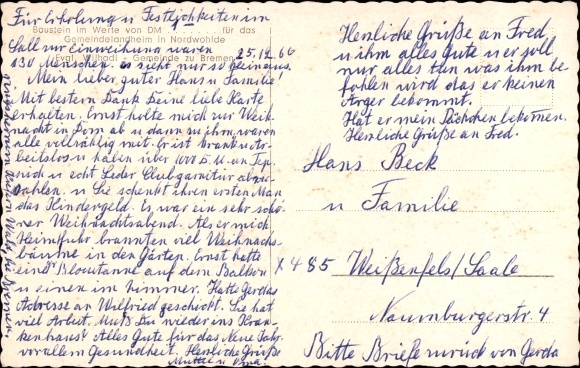 Für Erholung u Festlichkeiten im
Baustein im Werte von DM für das
Gemeindelandheim in Nordwohlde
Saal zur einweihung waren 25.12.66
Evgl. Wilhadi - Gemeinde zu Bremen
130 Menschen. es sieht nur so klein aus.
Mein lieber guter Hans u Familie!
Mit bestem Dank Deine liebe Karte
erhalten. Ernst holte mich zur Weih
nacht in Dom ab u dann zu ihm, waren
alle vollzählig mit. Er ist Krank u Ar-
beitslos u haben über 1000 D.M. an Tep
pich u echt Leder Clubgarnitur abzu-
zahlen. u Sie schenkt ihren ersten Man
das Kindergeld. Es war ein sehr schö-
ner Weihnachtsabend. Als er mich
Heimfuhr brannten viel Weihnachs-
bäume in den Gärten. Ernst hatte
eine Blautanne auf dem Balkon
u einen im Zimmer. Hatte Gerdas
Adresse an Wilfried geschickt. Sie hat
viel Arbeit. Mußt Du wieder ins Kran-
kenhaus? Alles Gute für das Neue Jahr
vor allem Gesundheit. Herzliche Grüße
Mutter u Oma.
Herzliche Grüße an Fred
u ihm alles Gute u er soll
nur alles tun was ihm be-
fohlen wird das er keinen
Ärger bekommt.
Hat er mein Päckchen bekomen.
Herzliche Grüße an Fred.
Hans Beck
u Familie
X 485 Weißenfels/Saale
Naumburgerstr. 4
Bitte Briefe zurück von Gerda